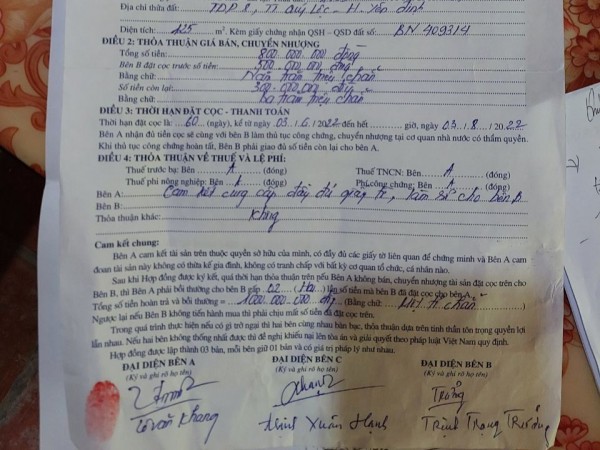 Địa chỉ thửa đất: TDP 8, TT Quý Lộc - H. Yên Định
Diện tích: 125 m². Kèm giấy chứng nhận QSH - QSD đất số: BN 409314
ĐIỀU 2: THỎA THUẬN GIÁ BÁN, CHUYỂN NHƯỢNG
Tổng số tiền: 800.000.000 đồng
Bên B đặt cọc trước số tiền: 500.000.000 đồng
Bằng chữ: Năm trăm triệu chẵn
Số tiền còn lại: 300.000.000 đồng
Bằng chữ: Ba trăm triệu chẵn
ĐIỀU 3: THỜI HẠN ĐẶT CỌC - THANH TOÁN
Thời hạn đặt cọc là: 60 ngày, kể từ ngày 03 / 6 / 2022 đến hết giờ, ngày 03 / 8 / 2022
Bên A nhận đủ tiền cọc sẽ cùng với bên B làm thủ tục công chứng, chuyển nhượng tại cơ quan nhà nước có thẩm quyền.
Khi thủ tục công chứng hoàn tất, Bên B phải giao đủ số tiền còn lại cho bên A.
ĐIỀU 4: THỎA THUẬN VỀ THUẾ VÀ LỆ PHÍ:
Thuế trước bạ: Bên A (đóng) Thuế TNCN: Bên A (đóng)
Thuế phi nông nghiệp: Bên A (đóng) Phí công chứng: Bên A (đóng)
Bên A: Cam kết cung cấp đầy đủ giấy tờ, làm sổ cho bên B
Bên B:
Thỏa thuận khác: Không
Cam kết chung:
Bên A cam kết tài sản trên thuộc quyền sở hữu của mình, có đầy đủ các giấy tờ liên quan để chứng minh và Bên A cam
đoan tài sản này không có thừa kế gia đình, không có tranh chấp với bất kỳ cơ quan tổ chức, cá nhân nào.
Sau khi Hợp đồng được ký kết, quá hạn thỏa thuận trên nếu Bên A không bán, chuyển nhượng tài sản đặt cọc trên cho
Bên B, thì Bên A phải bồi thường cho bên B gấp 02 (Hai) lần số tiền mà bên B đã đặt cọc cho bên A.
Tổng số tiền hoàn trả và bồi thường = 1.000.000.000 đồng (Bằng chữ: Một tỉ chẵn)
Ngược lại nếu Bên B không tiến hành mua thì phải chịu mất số tiền đã đặt cọc trên.
Trong quá trình thực hiện nếu có gì trở ngại thì hai bên cùng nhau bàn bạc, thỏa thuận dựa trên tinh thần tôn trọng quyền lợi
lẫn nhau. Nếu hai bên không thống nhất được thì đề nghị khiếu nại lên tòa án và giải quyết theo pháp luật Việt Nam quy định.
Hợp đồng được lập thành 03 bản, mỗi bên giữ 01 bản và có giá trị pháp lý như nhau.
ĐẠI DIỆN BÊN A ĐẠI DIỆN BÊN C ĐẠI DIỆN BÊN B
(Ký và ghi rõ họ tên) (Ký và ghi rõ họ tên) (Ký và ghi rõ họ tên)
Hạnh Trưởng
Văn Khang Trịnh Xuân Hạnh Trịnh Trọng Trưởng